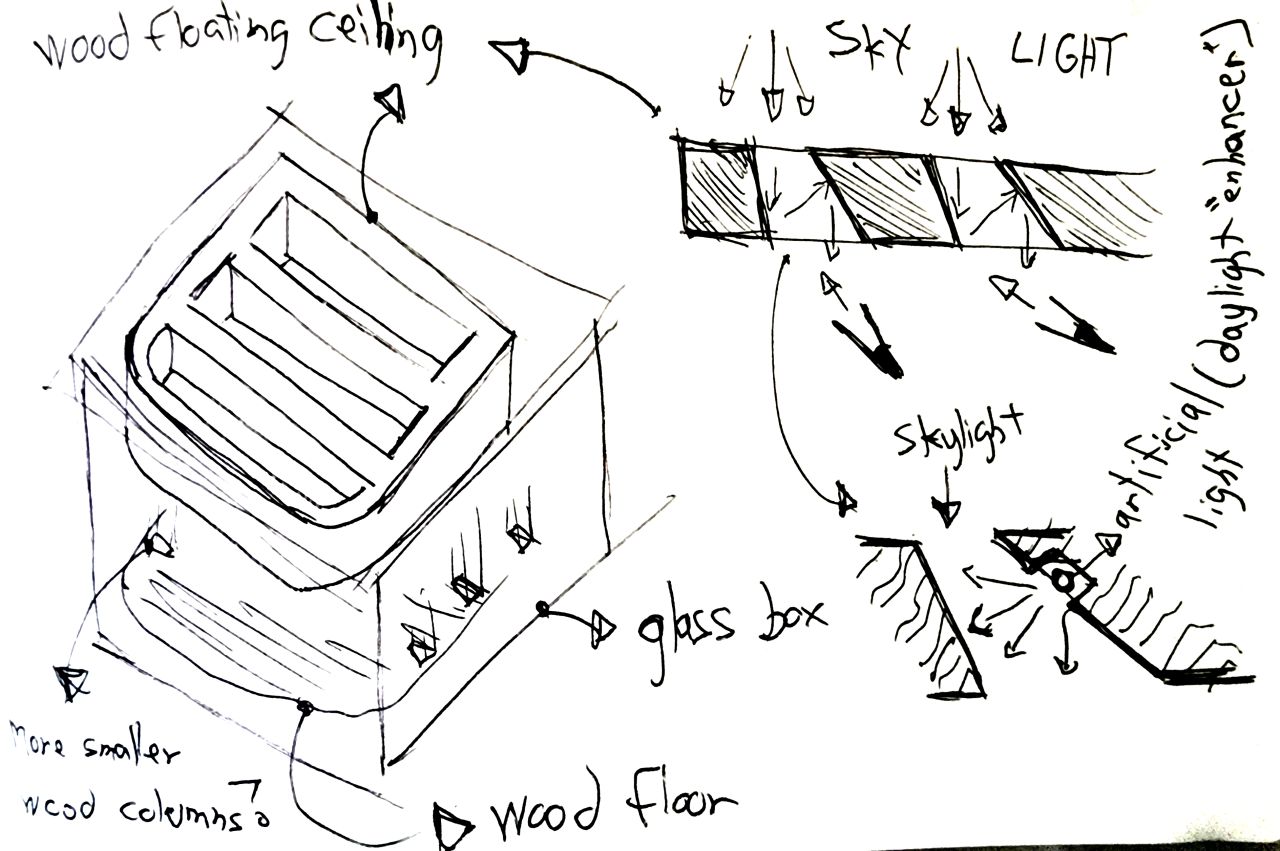 wood floating ceiling
SKY LIGHT
skylight
artificial (daylight "enhancer")
light
glass box
More smaller
wood columns?
wood floor